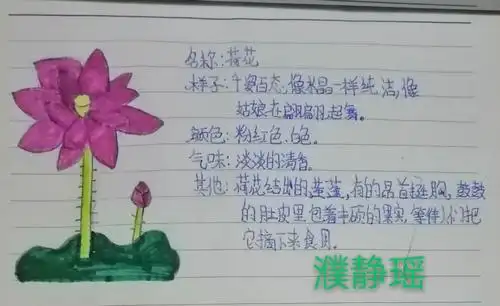 名称:荷花
样子:千姿百态,像水晶一样纯洁,像
姑娘在翩翩起舞。
颜色:粉红色、白色。
气味:淡淡的清香。
其他:荷花结出的莲蓬,有的昂首挺胸,鼓鼓
的肚皮里包着丰硕的果实,等伴人们把
它摘下来食用。
濮静瑶